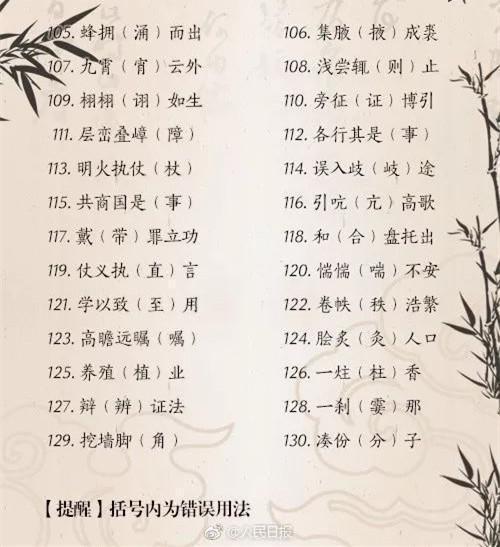 105. 蜂拥（涌）而出 106. 集腋（掖）成裘
107. 九霄（宵）云外 108. 浅尝辄（则）止
109. 栩栩（诩）如生 110. 旁征（证）博引
111. 层峦叠嶂（障） 112. 各行其是（事）
113. 明火执仗（杖） 114. 误入歧（岐）途
115. 共商国是（事） 116. 引吭（亢）高歌
117. 戴（带）罪立功 118. 和（合）盘托出
119. 仗义执（直）言 120. 惴惴（喘）不安
121. 学以致（至）用 122. 卷帙（秩）浩繁
123. 高瞻远瞩（嘱） 124. 脍炙（灸）人口
125. 养殖（植）业 126. 一炷（柱）香
127. 辩（辨）证法 128. 一刹（霎）那
129. 挖墙脚（角） 130. 凑份（分）子
【提醒】括号内为错误用法
@人民日报